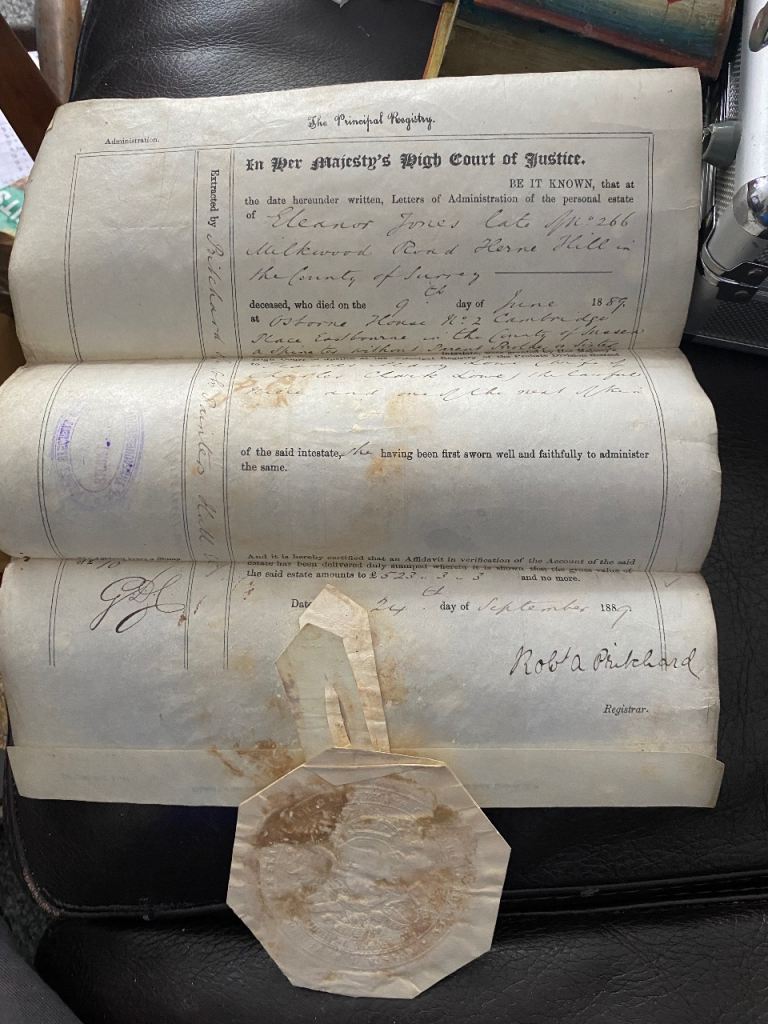 The Principal Registry.
Administration.
In Her Majesty's High Court of Justice.
BE IT KNOWN, that at
the date hereunder written, Letters of Administration of the personal estate
of Eleanor Jones late of No 266
Milkwood Road Herne Hill in
the County of Surrey
deceased, who died on the 9th day of June 1889
at Osborne House No 2 Cambridge
Place Eastbourne in the County of Sussex
a Spinster without Parent Brother or Sister
Charles Clark Lowe, the lawful
Niece and one of the next of kin
of the said intestate, she having been first sworn well and faithfully to administer
the same.
And it is hereby certified that an Affidavit in verification of the Account of the said
estate has been delivered duly stamped whereby it is shown that the gross value of
the said estate amounts to £523..3..3 and no more.
24th day of September 1889
Robt A Pritchard
Registrar.
Extracted by Pritchard Painters Hall